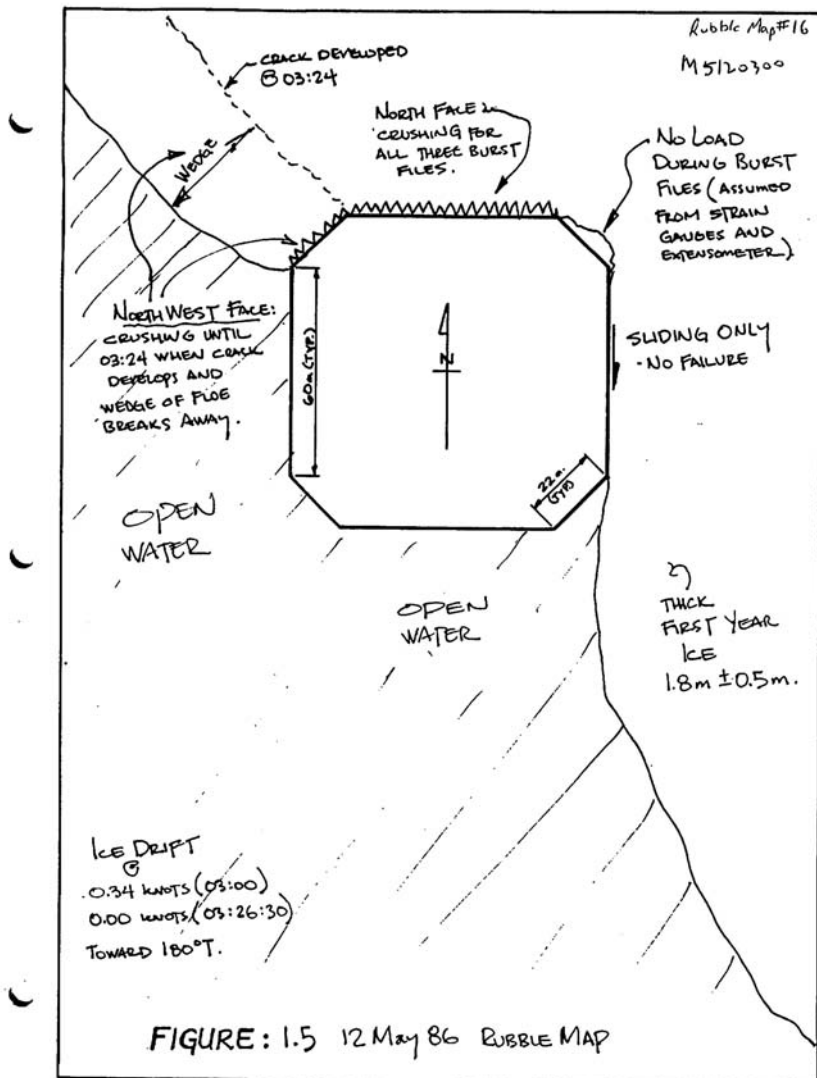 Rubble Map #16
M5120300
CRACK DEVELOPED
@ 03:24
NORTH FACE:
CRUSHING FOR
ALL THREE BURST
FILES.
NO LOAD
DURING BURST
FILES (ASSUMED
FROM STRAIN
GAUGES AND
EXTENSOMETER).
WEDGE
NORTH WEST FACE:
CRUSHING UNTIL
03:24 WHEN CRACK
DEVELOPS AND
WEDGE OF FLOE
BREAKS AWAY.
60m (TYP.)
N
SLIDING ONLY
- NO FAILURE
22m.
(TYP)
OPEN
WATER
OPEN
WATER
THICK
FIRST YEAR
ICE
1.8m ± 0.5m.
ICE DRIFT
@
0.34 KNOTS (03:00)
0.00 KNOTS (03:26:30)
TOWARD 180°T.
FIGURE: 1.5 12 May 86 RUBBLE MAP